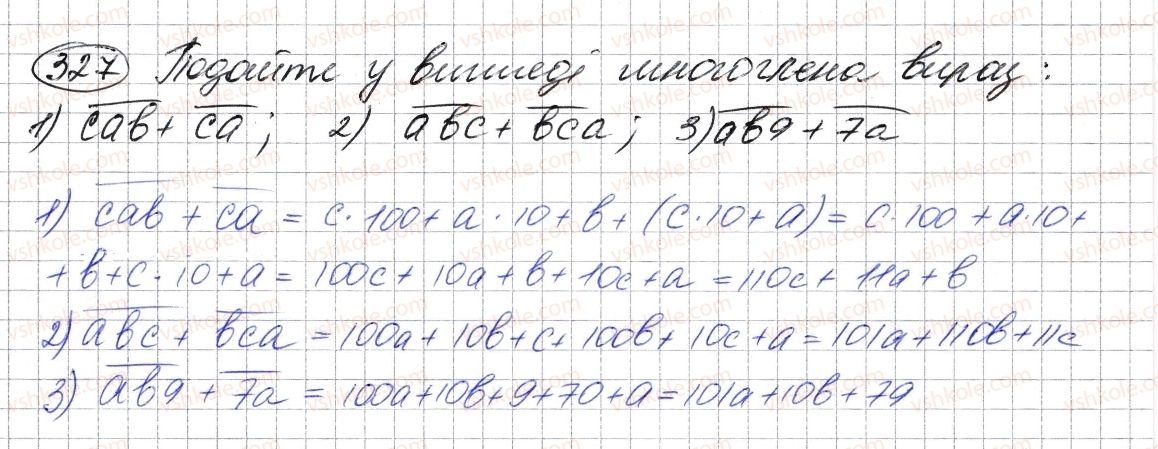 327 Подайте у вигляді многочлена вираз:
1) c̅a̅b̅ + c̅a̅; 2) a̅b̅c̅ + b̅c̅a̅; 3) a̅b̅9̅ + 7̅a̅
1) c̅a̅b̅ + c̅a̅ = c·100 + a·10 + b + (c·10 + a) = c·100 + a·10 +
+ b + c·10 + a = 100c + 10a + b + 10c + a = 110c + 11a + b
2) a̅b̅c̅ + b̅c̅a̅ = 100a + 10b + c + 100b + 10c + a = 101a + 110b + 11c
3) a̅b̅9̅ + 7̅a̅ = 100a + 10b + 9 + 70 + a = 101a + 10b + 79